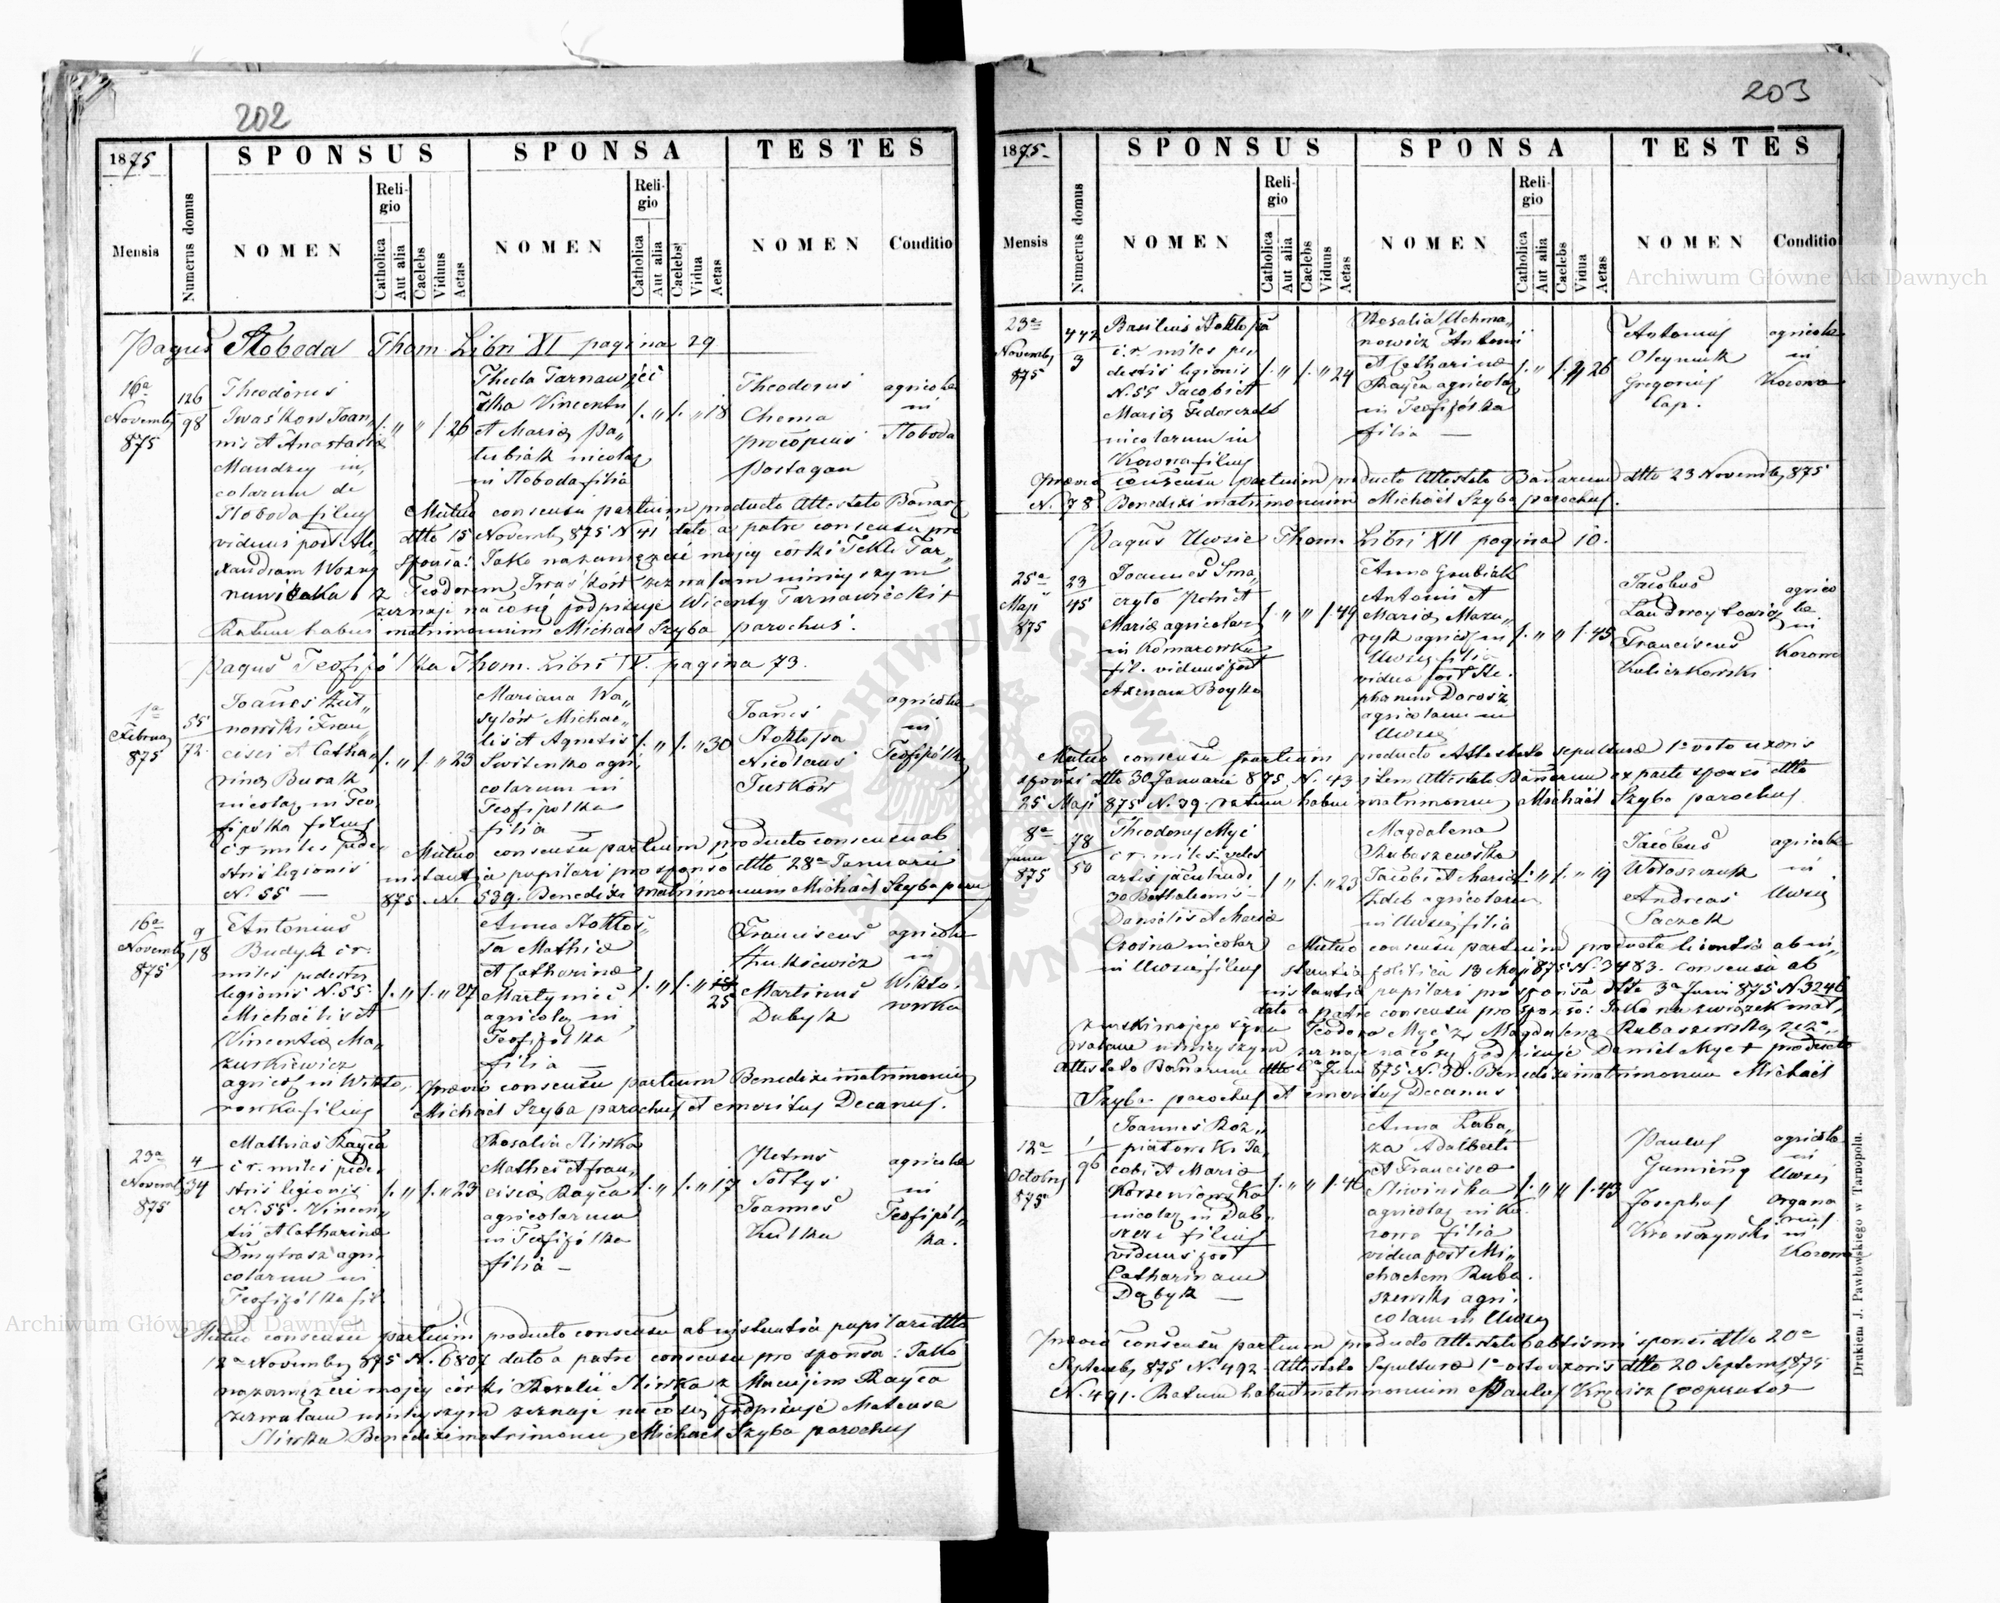 202
1875
SPONSUS
SPONSA
TESTES
Mensis
Numerus domus
NOMEN
Religio
Catholica
Aut alia
Caelebs
Viduus
Aetas
NOMEN
Religio
Catholica
Aut alia
Caelebs
Vidua
Aetas
NOMEN
Conditio
Pagus Sloboda Thom. Libri XI pagina 29
16a
Novemb
875
126
98
Theodorus
Iwaśkow Joan„
nis et Anastasiae
Mandzey in„
colarum de
Sloboda filius
viduus post Ale
xandram Wozny
26
Thecla Tarnawiéc
et Mariae Pa„
lubiak
in Sloboda filia
18
Theodorus
Chema
Procopius
agricolae
in
Sloboda
Mutuo consensu partium producto Attestato Bañar
dtto 15 Novemb 875 N 41 dato a patre consensu pro
sponsa: Jako na zamęzcie mojey córki Tekli Tar„
z Teodorem Iwaśków zezwalam niniejszym
zeznaje na co się podpisuje Wicenty Tarnawiecki +
Ratum habui matrimonium Michael Szyba parochus.
Pagus Teofipólka Thom. Libri IV. pagina 73.
1a
Februar
875
55
72.
nowski Fran„
cisci et Catha„
rinae Burak
in Teo
fipólka filius
c. r. miles pede„
stris legionis
N. 55 —
23
Mariana Wa„
sylów Michae„
lis et Agnetis
Switenko agri„
colarum in
Teofipolka
filia
30
Joañes
Stoklosa
Nicolaus
Juśków
agricolae
in
Teofipólka
Mutuo consensu partium producto consensu ab
instantia pupilari pro sponso dtto 28a Januarii
875. N. 539. Benedixi matrimonium Michael Szyba paro
16a
Novemb
875
9
18
Antonius
Budyk c. r.
miles pedestris
legionis N. 55.
Michaelis et
Vincentia Ma„
zurkiewicz
agricol in Wikto„
rowka filius
27
Anna Stoklos„
sa Mathiae
et Catharinae
Martyniec
agricolae in
Teofipolka
filia —
25
Franciscus
Martinus
Dubyk
agricolae
in
Wikto„
rowka
Praevio consensu partium Benedixi matrimonium
Michael Szyba parochus et emeritus Decanus.
23a
Novemb
875
4
34
Mathias Rayca
c. r. miles pede„
stris legionis
N. 55. Vincen„
tii et Catharinae
Dmytrasz agri„
colarum in
Teofipólka fil.
23
Rosalia Sliwka
Mathei et Fran„
ciscae Rayca
agricolarum
in Teofipólka
filia —
17
Petrus
Soltys
Joannes
Kulka
agricolae
in
Teofipól„
ka.
Mutuo consensu partium producto consensu ab instantia pupilari dtto
12a Novemb 875 N. 6807 dato a patre consensu pro sponsa: Jako
na zamęzcie mojey córki Rosalii Sliwka z Maciejem Rayca
zezwalam niniejszym zeznaje na co się podpisuje Mateusz
Sliwka. Benedixi matrimonium Michael Szyba parochus
203
1875
SPONSUS
SPONSA
TESTES
Mensis
Numerus domus
NOMEN
Religio
Catholica
Aut alia
Caelebs
Viduus
Aetas
NOMEN
Religio
Catholica
Aut alia
Caelebs
Vidua
Aetas
NOMEN
Conditio
23a
Novemb
875
442
3
Basilius Stoklosa
c. r. miles pe„
destris legionis
N. 55 Jacobi et
Mariae Fedorczak
in
Kozowa filius
24
Rosalia Uchma„
nowicz Antonii
et Catharinae
Rayca agricolae
in Teofipólka
filia —
26
Antonius
Oleynik
Gregorius
Cap.
agricolae
in
Kozowa
Praevio consensu partium producto Attestato Bañarum dtto 23 Novemb 875
N. 78 Benedixi matrimonium Michael Szyba parochus.
Pagus Uwsie Thom. Libri XII pagina 10.
25a
Maji
875
23
45
Joannes Sma„
czylo Petri et
Mariae agricolar
in Komarowka
fil. viduus post
Axenam Boyko
49
Anna Grubiak
Antonii et
Mariae Mazu„
ryk agricol in
Uwsie filia
vidua post Ste„
phanum Dorosz
agricolam in
Uwsie
45
Jacobus
Franciscus
Kuliczkowski
agrico
lae
in
Kozowa
Mutuo consensu partium producto Attestato sepulturae 1o voto uxoris
sponsi dtto 30 Januarii 875 N. 43 item Attestato Bañarum ex parte sponsi dtto
25 Maji 875 N. 29. ratum habui matrimonium Michael Szyba parochus
8a
Junii
875
78
50
Theodorus Myc
c. r. miles
30 Bathalionis
Danielis et Mariae
Crosna
in Uwsie filius
23
Magdalena
Rubaszewska
Jacobi et Mariae
Zdeb agricolarum
in Uwsie filia
19
Jacobus
Wołoszczuk
Andreas
Saczek
agricolae
in
Uwsie
Mutuo consensu partium producta licentia ab in„
stantia politica 13 Maji 875 N. 3483. consensu ab
instantia pupilari pro sponsa dtto 3a Junii 875 N. 3246
dato a patre consensu pro sponso: Jako na związek mał„
zenski mojego syna Teodora Myc z Magdalena Rubaszewska zez„
walam niniejszym zeznaje na co się podpisuje Daniel Myc + producto
Attestato Bañarum dtto 6a Junii 875 N. 30. Benedixi matrimonium Michael
Szyba parochus et emeritus Decanus
12a
Octobris
875
1
96
Joannes Roz„
piatowski Ja„
cobi et Mariae
Korzeniowska
in Dab„
szcze filius
viduus post
Catharinam
Dębyk —
46
Anna Laba„
za Adalberti
et Francisca
Sliwinska
agricolae in Ko„
zowa filia
vidua post Mi„
chaelem Ruba„
szewski agri„
colam in Uwsie
43
Paulus
Josephus
Krawczynski
agricola
in
Uwsie
organa
rius
in
Kozowa
Praevio consensu partium producto Attestato babtismi sponsi dtto 20a
Septemb 875 N. 492. Attestato Sepulturae 1o voto uxoris dtto 20 Septemb 875
N. 491. Ratum habuit matrimonium Paulus Cooperator
Drukiem J. Pawłowskiego w Tarnopolu.
Archiwum Główne Akt Dawnych
Archiwum Główne Akt Dawnych
ARCHIWUM GŁÓWNE AKT DAWNYCH